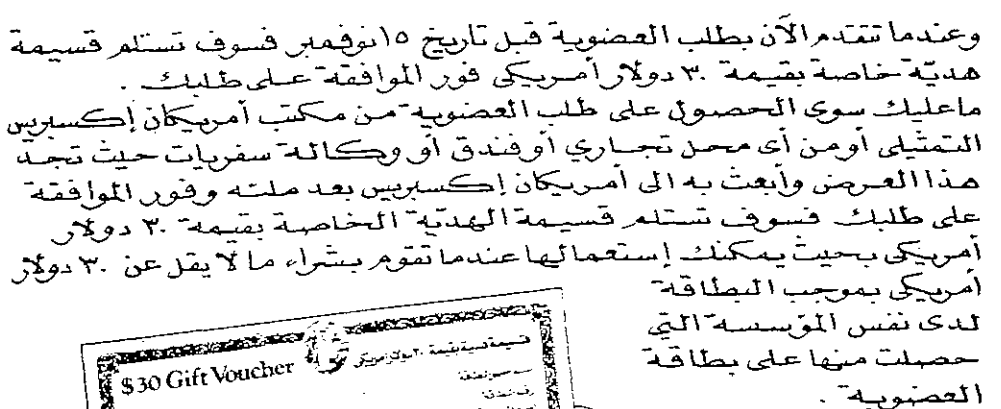 وعندما تتقدم الآن بطلب العضوية قبل تاريخ ١٥ نوفمبر فسوف تستلم قسيمة
هديّة خاصة بقيمة ٣٠ دولار أمريكي فور الموافقة على طلبك .
ماعليك سوى الحصول على طلب العضوية من مكتب أمريكان إكسبريس
التمثيلي أو من أي محل تجاري أو فندق أو وكالة سفريات حيث تجد
هذا العرض وأبعث به الى أمريكان إكسبريس بعد ملئه وفور الموافقة
على طلبك فسوف تستلم قسيمة الهديّة الخاصة بقيمة ٣٠ دولار
أمريكي بحيث يمكنك إستعمالها عندما تقوم بشراء ما لا يقل عن ٣٠ دولار
أمريكي بموجب البطاقة
لدى نفس المؤسسة التي
حصلت منها على بطاقة
العضوية .
$30 Gift Voucher
قسيمة هدية بقيمة ٣٠ دولار أمريكي